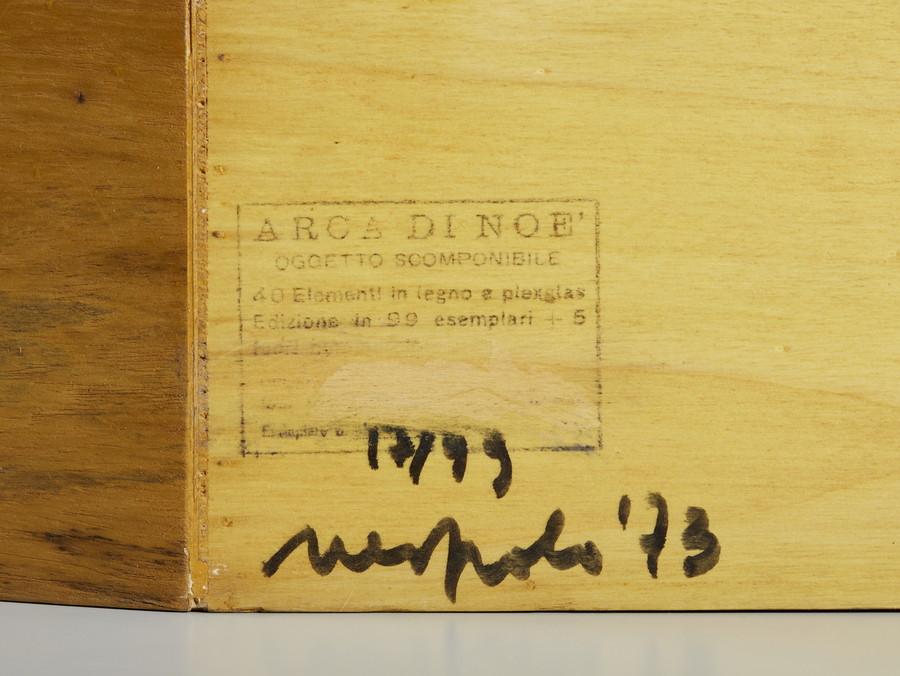 ARCA DI NOE'
OGGETTO SCOMPONIBILE
40 Elementi in legno e plexglas
Edizione in 99 esemplari + 5
fuori
Esemplare n.
17/99
nespolo '73